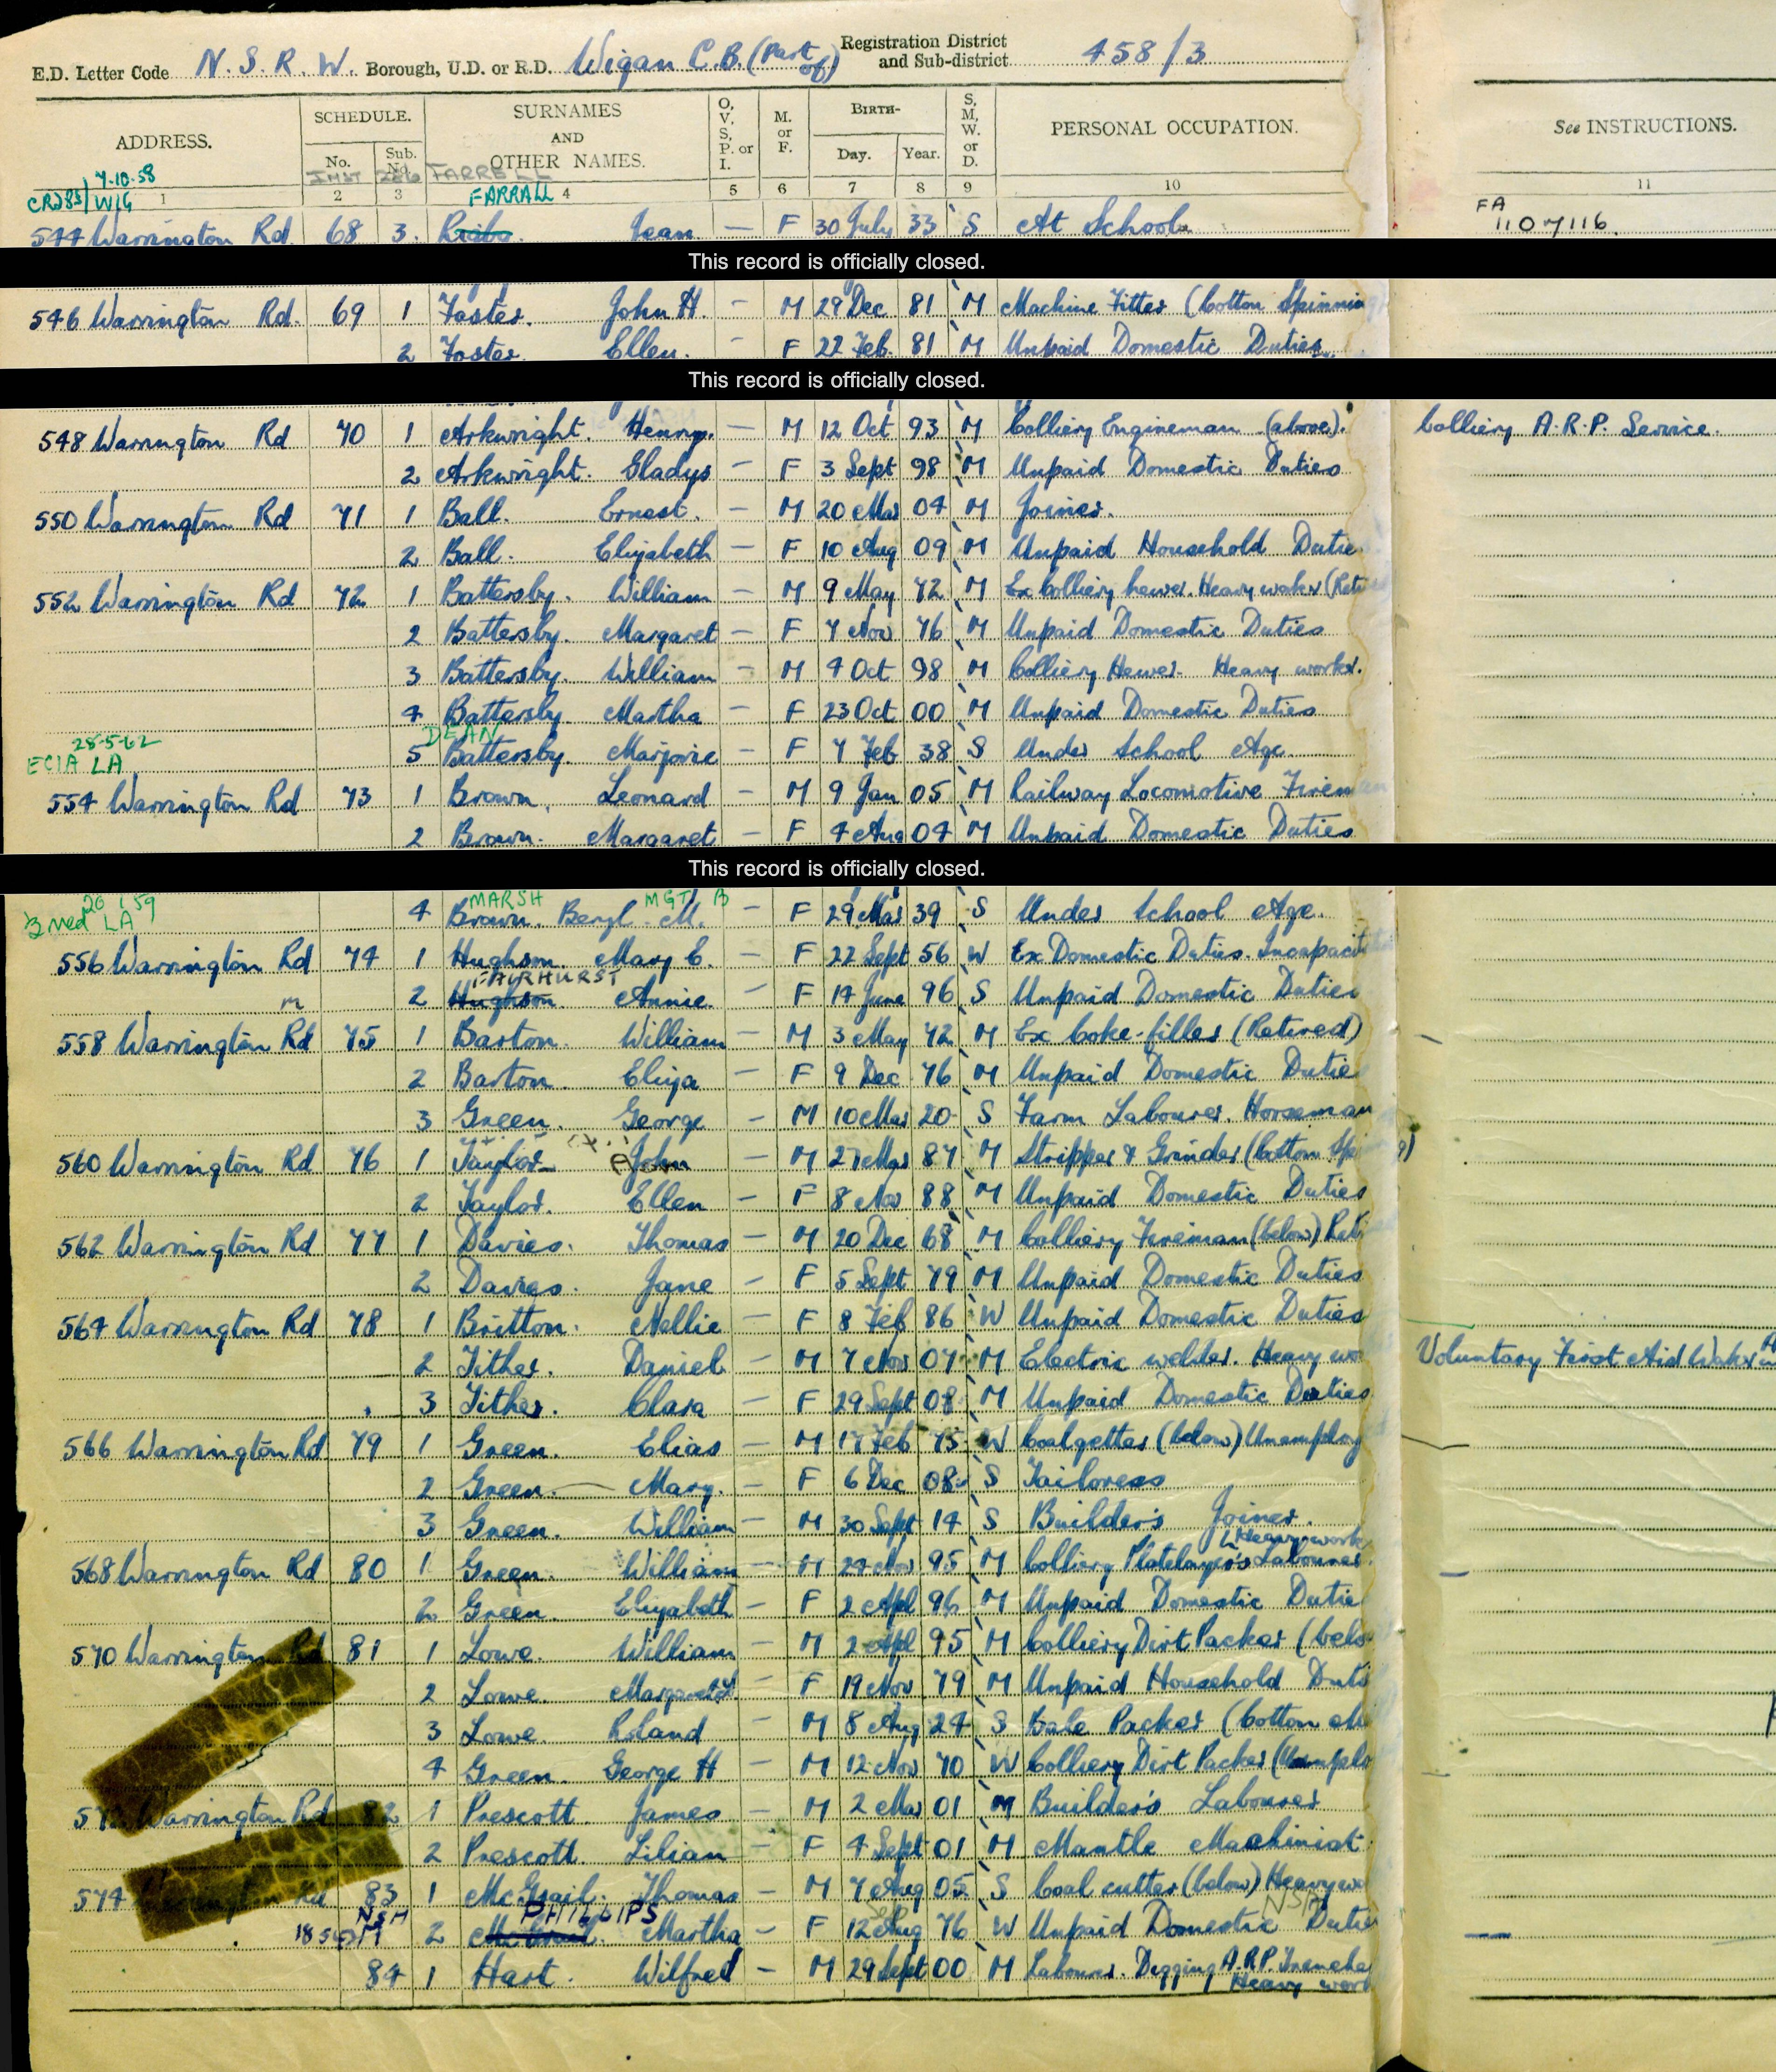 E.D. Letter Code N. S. R. W. Borough, U.D. or R.D. Wigan C.B. (Part of) Registration District and Sub-district 458/3
ADDRESS. SCHEDULE. No. Sub. No. SURNAMES AND OTHER NAMES. O, V, S, P. or I. M. or F. BIRTH- Day. Year. S, M, W. or D. PERSONAL OCCUPATION. See INSTRUCTIONS.
7-10-58
CR283/WIG FARRELL
1 2 3 FARRALL 4 5 6 7 8 9 10 11
544 Warrington Rd 68 3. Jean — F 30 July 33 S At School FA 1107116.
This record is officially closed.
546 Warrington Rd. 69 1 Foster. John H. — M 29 Dec 81 M Machine Fitter (Cotton Spinning
2 Foster. Ellen. — F 22 Feb. 81 M Unpaid Domestic Duties.
This record is officially closed.
548 Warrington Rd 70 1 Arkwright. Henry. — M 12 Oct 93 M Colliery Engineman (above). Colliery A.R.P. Service.
2 Arkwright. Gladys — F 3 Sept 98 M Unpaid Domestic Duties
550 Warrington Rd 71 1 Ball. Ernest. — M 20 Mar 04 M Joiner.
2 Ball. Elizabeth — F 10 Aug 09 M Unpaid Household Dutie
552 Warrington Rd 72 1 Battersby. William — M 9 May 72 M Ex Colliery hewer. Heavy worker (Reti
2 Battersby. Margaret — F 7 Nov 76 M Unpaid Domestic Duties
3 Battersby. William — M 4 Oct 98 M Colliery Hewer. Heavy worker.
4 Battersby. Martha — F 23 Oct 00 M Unpaid Domestic Duties
28-5-62 DEAN
ECIA LA 5 Battersby. Marjorie — F 7 Feb 38 S Under School Age
554 Warrington Rd 73 1 Brown. Leonard — M 9 Jan 05 M Railway Locomotive Fireman
2 Brown. Margaret — F 4 Aug 04 M Unpaid Domestic Duties
This record is officially closed.
20 1 59 MARSH MGT B
LA 4 Brown. Beryl M. — F 29 Mar 39 S Under School Age.
556 Warrington Rd 74 1 Hughson. Mary E. — F 22 Sept 56 W Ex Domestic Duties. Incapacit
FAIRHURST
m 2 Hughson. Annie. — F 14 June 96 S Unpaid Domestic Duties
558 Warrington Rd 75 1 Barton. William — M 3 May 72 M Ex Coke-filler (Retired)
2 Barton. Eliza — F 9 Dec 76 M Unpaid Domestic Dutie
3 Green. George — M 10 Mar 20 S Farm Labourer. Horseman
560 Warrington Rd 76 1 Taylor. John M 27 Mar 87 M Stripper & Grinder (Cotton Spi g)
2 Taylor. Ellen — F 8 Nov 88 M Unpaid Domestic Duties
562 Warrington Rd 77 1 Davies. Thomas — M 20 Dec 68 M Colliery Fireman (below) Reti
2 Davies. Jane — F 5 Sept 79 M Unpaid Domestic Duties
564 Warrington Rd 78 1 Britton. Nellie — F 8 Feb 86 W Unpaid Domestic Duties
2 Tither. Daniel — M 7 Nov 07 M Electric welder. Heavy wo Voluntary First Aid
3 Tither. Clara — F 29 Sept 08 M Unpaid Domestic Duties
566 Warrington Rd 79 1 Green. Elias — M 17 Feb 75 W Coalgetter (below) Unemploy
2 Green. Mary. — F 6 Dec 08 S Tailoress
3 Green. William — M 30 Sept 14 S Builder's Joiner.
Heavy work
568 Warrington Rd 80 1 Green. William — M 24 Nov 95 M Colliery Platelayer's Labourer
2 Green. Elizabeth — F 2 Apl 96 M Unpaid Domestic Dutie
570 Warrington Rd 81 1 Lowe. William — M 2 Apl 95 M Colliery Dirt Packer (belo
2 Lowe. — F 19 Nov 99 M Unpaid Household Duti
3 Lowe. Roland — M 8 Aug 24 S Bale Packer (Cotton
4 Green. George H — M 12 Nov 70 W Colliery Dirt Packer (Unemplo
572 Warrington Rd 82 1 Prescott. James — M 2 Mar 01 M Builder's Labourer
2 Prescott. Lilian — F 4 Sept 01 M Mantle Machinist.
574 Warrington Rd 83 1 McGrail. Thomas — M 7 Aug 05 S Coal cutter (below) Heavy wo
NSH PHILLIPS NSH
2 Martha — F 12 Aug 76 W Unpaid Domestic Dutie
84 1 Hart. Wilfred — M 29 Sept 00 M Labourer. Digging A.R.P. Trenche
Heavy work